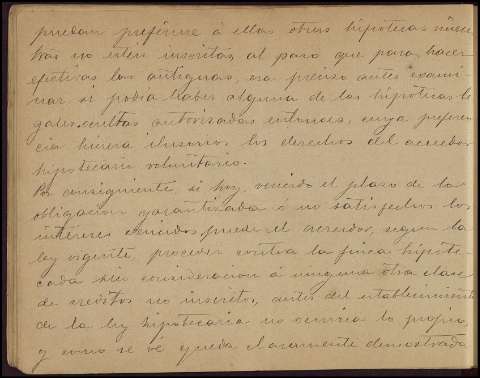 puedan preferirse á ellas otras hipotecas mien
tras no estén inscritas, al paso que para hacer
efectivas las antiguas, era preciso antes exami
nar si podía haber alguna de las hipotecas le
gales ocultas autorizadas entonces, cuya preferen
cia hiciera ilusorios los derechos del acreedor
hipotecario voluntario.
Por consiguiente, si hoy, vencido el plazo de la
obligación garantizada ó no satisfechos los
intereses vencidos, puede el acreedor, segun la
ley vigente, proceder contra la finca hipote
cada sin consideracion á ninguna otra clase
de creditos no inscritos, antes del establecimiento
de la ley hipotecaria no ocurria lo propio,
y como se vé queda claramente demostrada